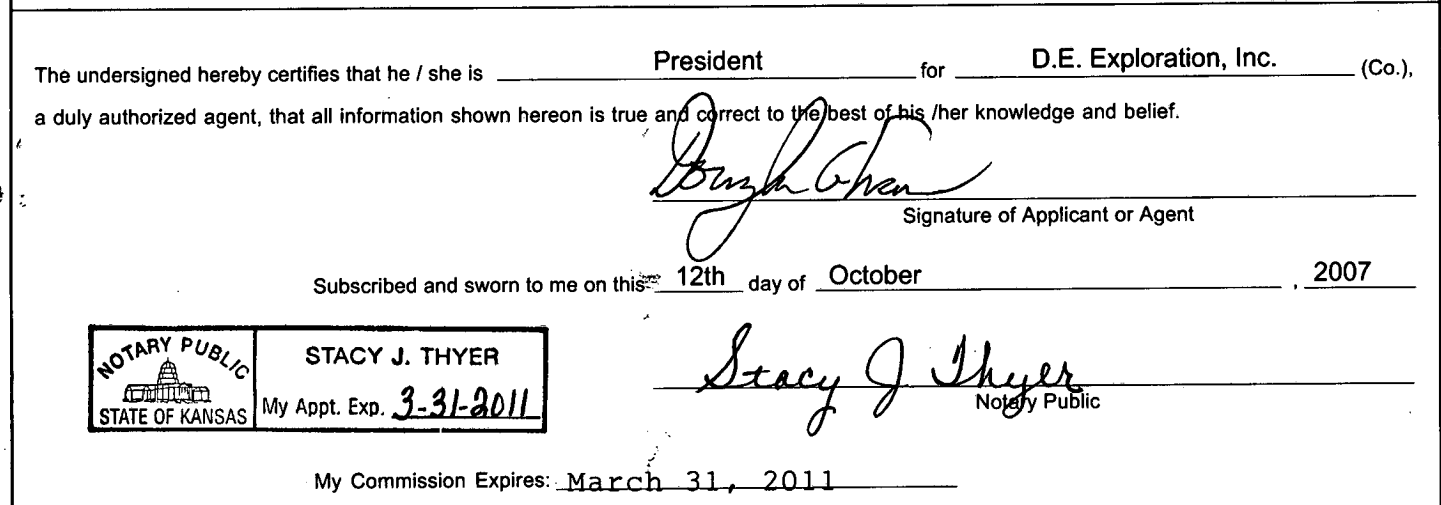 The undersigned hereby certifies that he / she is President for D.E. Exploration, Inc. (Co.),
a duly authorized agent, that all information shown hereon is true and correct to the best of his /her knowledge and belief.
Signature of Applicant or Agent
Subscribed and sworn to me on this 12th day of October , 2007
NOTARY PUBLIC
STATE OF KANSAS
STACY J. THYER
My Appt. Exp. 3-31-2011
Stacy J Thyer
Notary Public
My Commission Expires: March 31, 2011